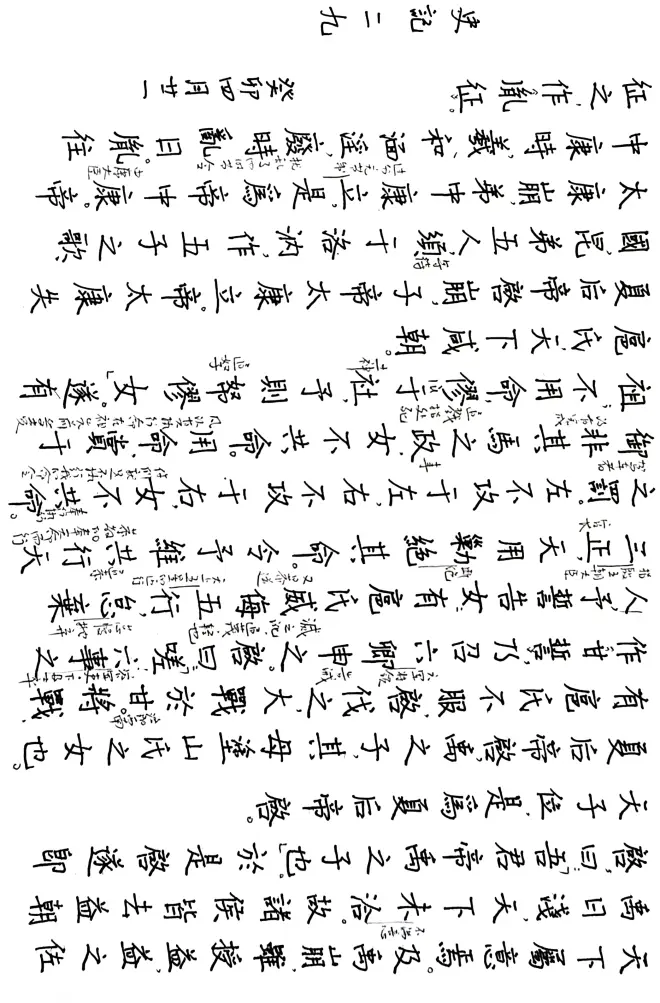 天下屬意焉。及禹崩,雖授益,益之佐
禹日淺,天下未洽。故諸侯皆去益朝
啟,曰:「吾君帝禹之子也」。於是啟遂即
天子位,是為夏后帝啟。
夏后帝啟,禹之子,其母塗山氏之女也。
有扈氏不服,啟伐之,大戰於甘。將戰,
作甘誓,乃召六卿申之。啟曰:「嗟!六事之
人,予誓告女:有扈氏威侮五行,怠棄
三正,天用勦絕其命。今予維共行天
之罰。左不攻于左,右不攻于右,女不共命。
御非其馬之政,女不共命。用命,賞于
祖,不用命,僇于社,予則帑僇女」。遂有
扈氏,天下咸朝。
夏后帝啟崩,子帝太康立。帝太康失
國,昆弟五人,須于洛汭,作五子之歌
太康崩,弟中康立,是為帝中康。帝
中康時,羲、和湎淫,廢時亂日。胤往
征之,作胤征。 癸卯四月廿一
史記二九